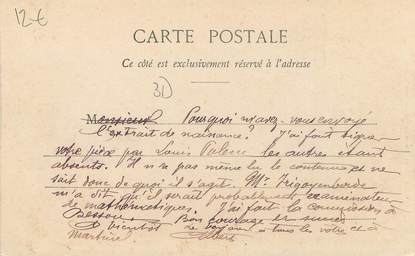 12-€
CARTE POSTALE
Ce côté est exclusivement réservé à l'adresse
3D
Monsieur Pourquoi m'avez-vous envoyé
l'extrait de naissance? J'ai fait signer
votre pièce par Louis les autres étant
absents. Il n'a pas même lu le contenu et ne
sait donc de quoi il s'agit. Mr.
m'a dit qu'il serait probablement examinateur
de mathématiques. J'ai fait la commission à
Bon courage et succès
A bientôt à tous les vôtre
Albert